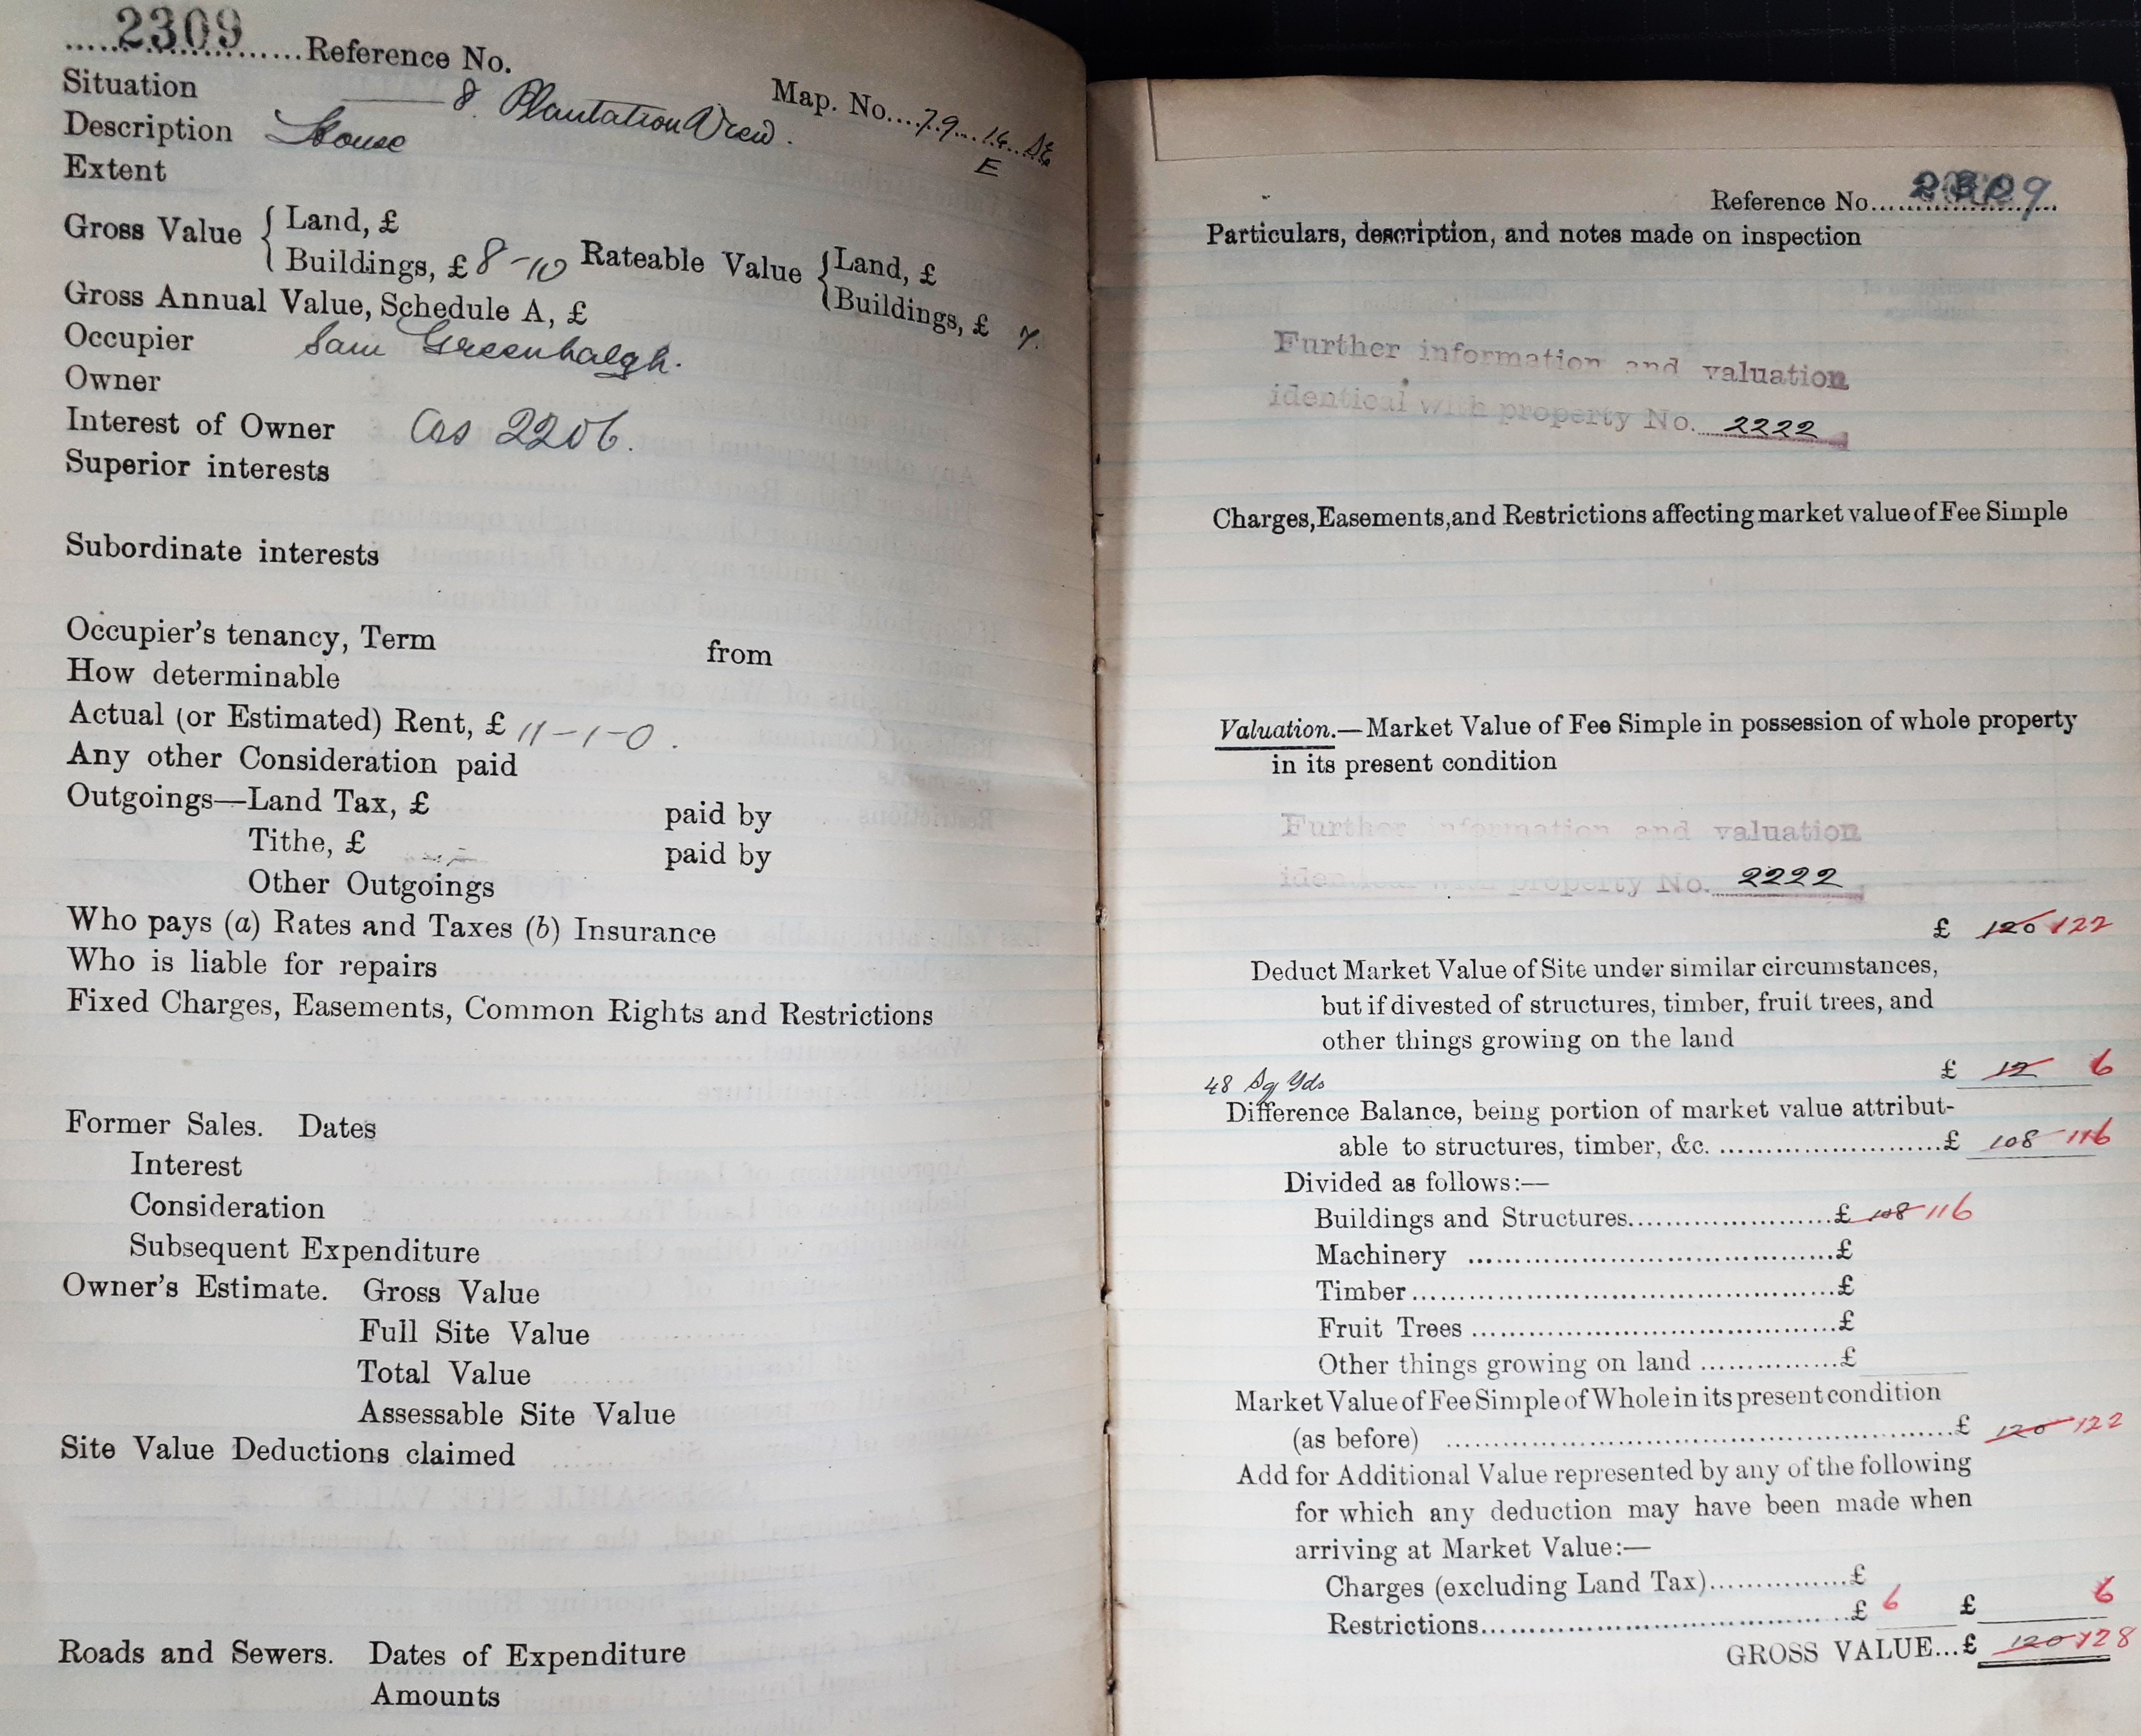 2309 Reference No.
Map. No. 79 14
E
Situation 8 Plantation View.
Description House
Extent
Gross Value { Land, £
Buildings, £ 8-10 Rateable Value { Land, £
Buildings, £ 7.
Gross Annual Value, Schedule A, £
Occupier Sam Greenhalgh.
Owner
Interest of Owner as 2206.
Superior interests
Subordinate interests
Occupier's tenancy, Term from
How determinable
Actual (or Estimated) Rent, £ 11-1-0.
Any other Consideration paid
Outgoings—Land Tax, £ paid by
Tithe, £ paid by
Other Outgoings
Who pays (a) Rates and Taxes (b) Insurance
Who is liable for repairs
Fixed Charges, Easements, Common Rights and Restrictions
Former Sales. Dates
Interest
Consideration
Subsequent Expenditure
Owner's Estimate. Gross Value
Full Site Value
Total Value
Assessable Site Value
Site Value Deductions claimed
Roads and Sewers. Dates of Expenditure
Amounts
Reference No. 2309
Particulars, description, and notes made on inspection
Further information and valuation
identical with property No. 2222
Charges, Easements, and Restrictions affecting market value of Fee Simple
Valuation.—Market Value of Fee Simple in possession of whole property
in its present condition
Further information and valuation
identical with property No. 2222
£ 120 122
Deduct Market Value of Site under similar circumstances,
but if divested of structures, timber, fruit trees, and
other things growing on the land
£ 12 6
48 Sq Yds
Difference Balance, being portion of market value attribut-
able to structures, timber, &c. ........................£ 108 116
Divided as follows:—
Buildings and Structures......................£ 108 116
Machinery ........................................£
Timber...............................................£
Fruit Trees ........................................£
Other things growing on land ...............£
Market Value of Fee Simple of Whole in its present condition
(as before) ........................................................£ 120 122
Add for Additional Value represented by any of the following
for which any deduction may have been made when
arriving at Market Value:—
Charges (excluding Land Tax)...............£
Restrictions.........................................£ 6 £ 6
GROSS VALUE...£ 120 128